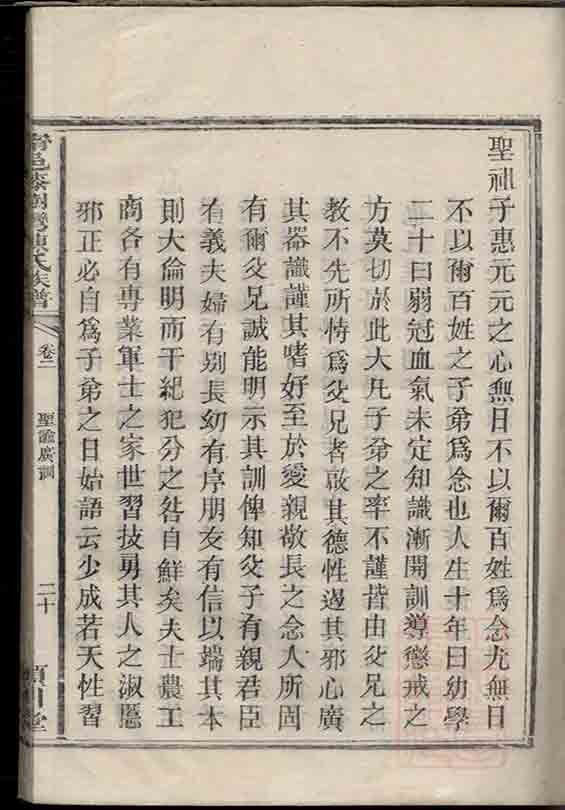 聖祖子惠元元之心無日不以爾百姓爲念尤無日
不以爾百姓之子弟爲念也人生十年曰幼學
二十曰弱冠血氣未定知識漸開訓導懲戒之
方莫切於此大凡子弟之率不謹皆由父兄之
教不先所恃爲父兄者啟其德性遏其邪心廣
其器識謹其嗜好至於愛親敬長之念人所固
有爾父兄誠能明示其訓俾知父子有親君臣
有義夫婦有别長幼有序朋友有信以端其本
則大倫明而干紀犯分之咎自鮮矣夫士農工
商各有專業軍士之家世習技勇其人之淑慝
邪正必自爲子弟之日始語云少成若天性習
陳氏族譜
卷二
聖諭廣訓
二十
潁川堂